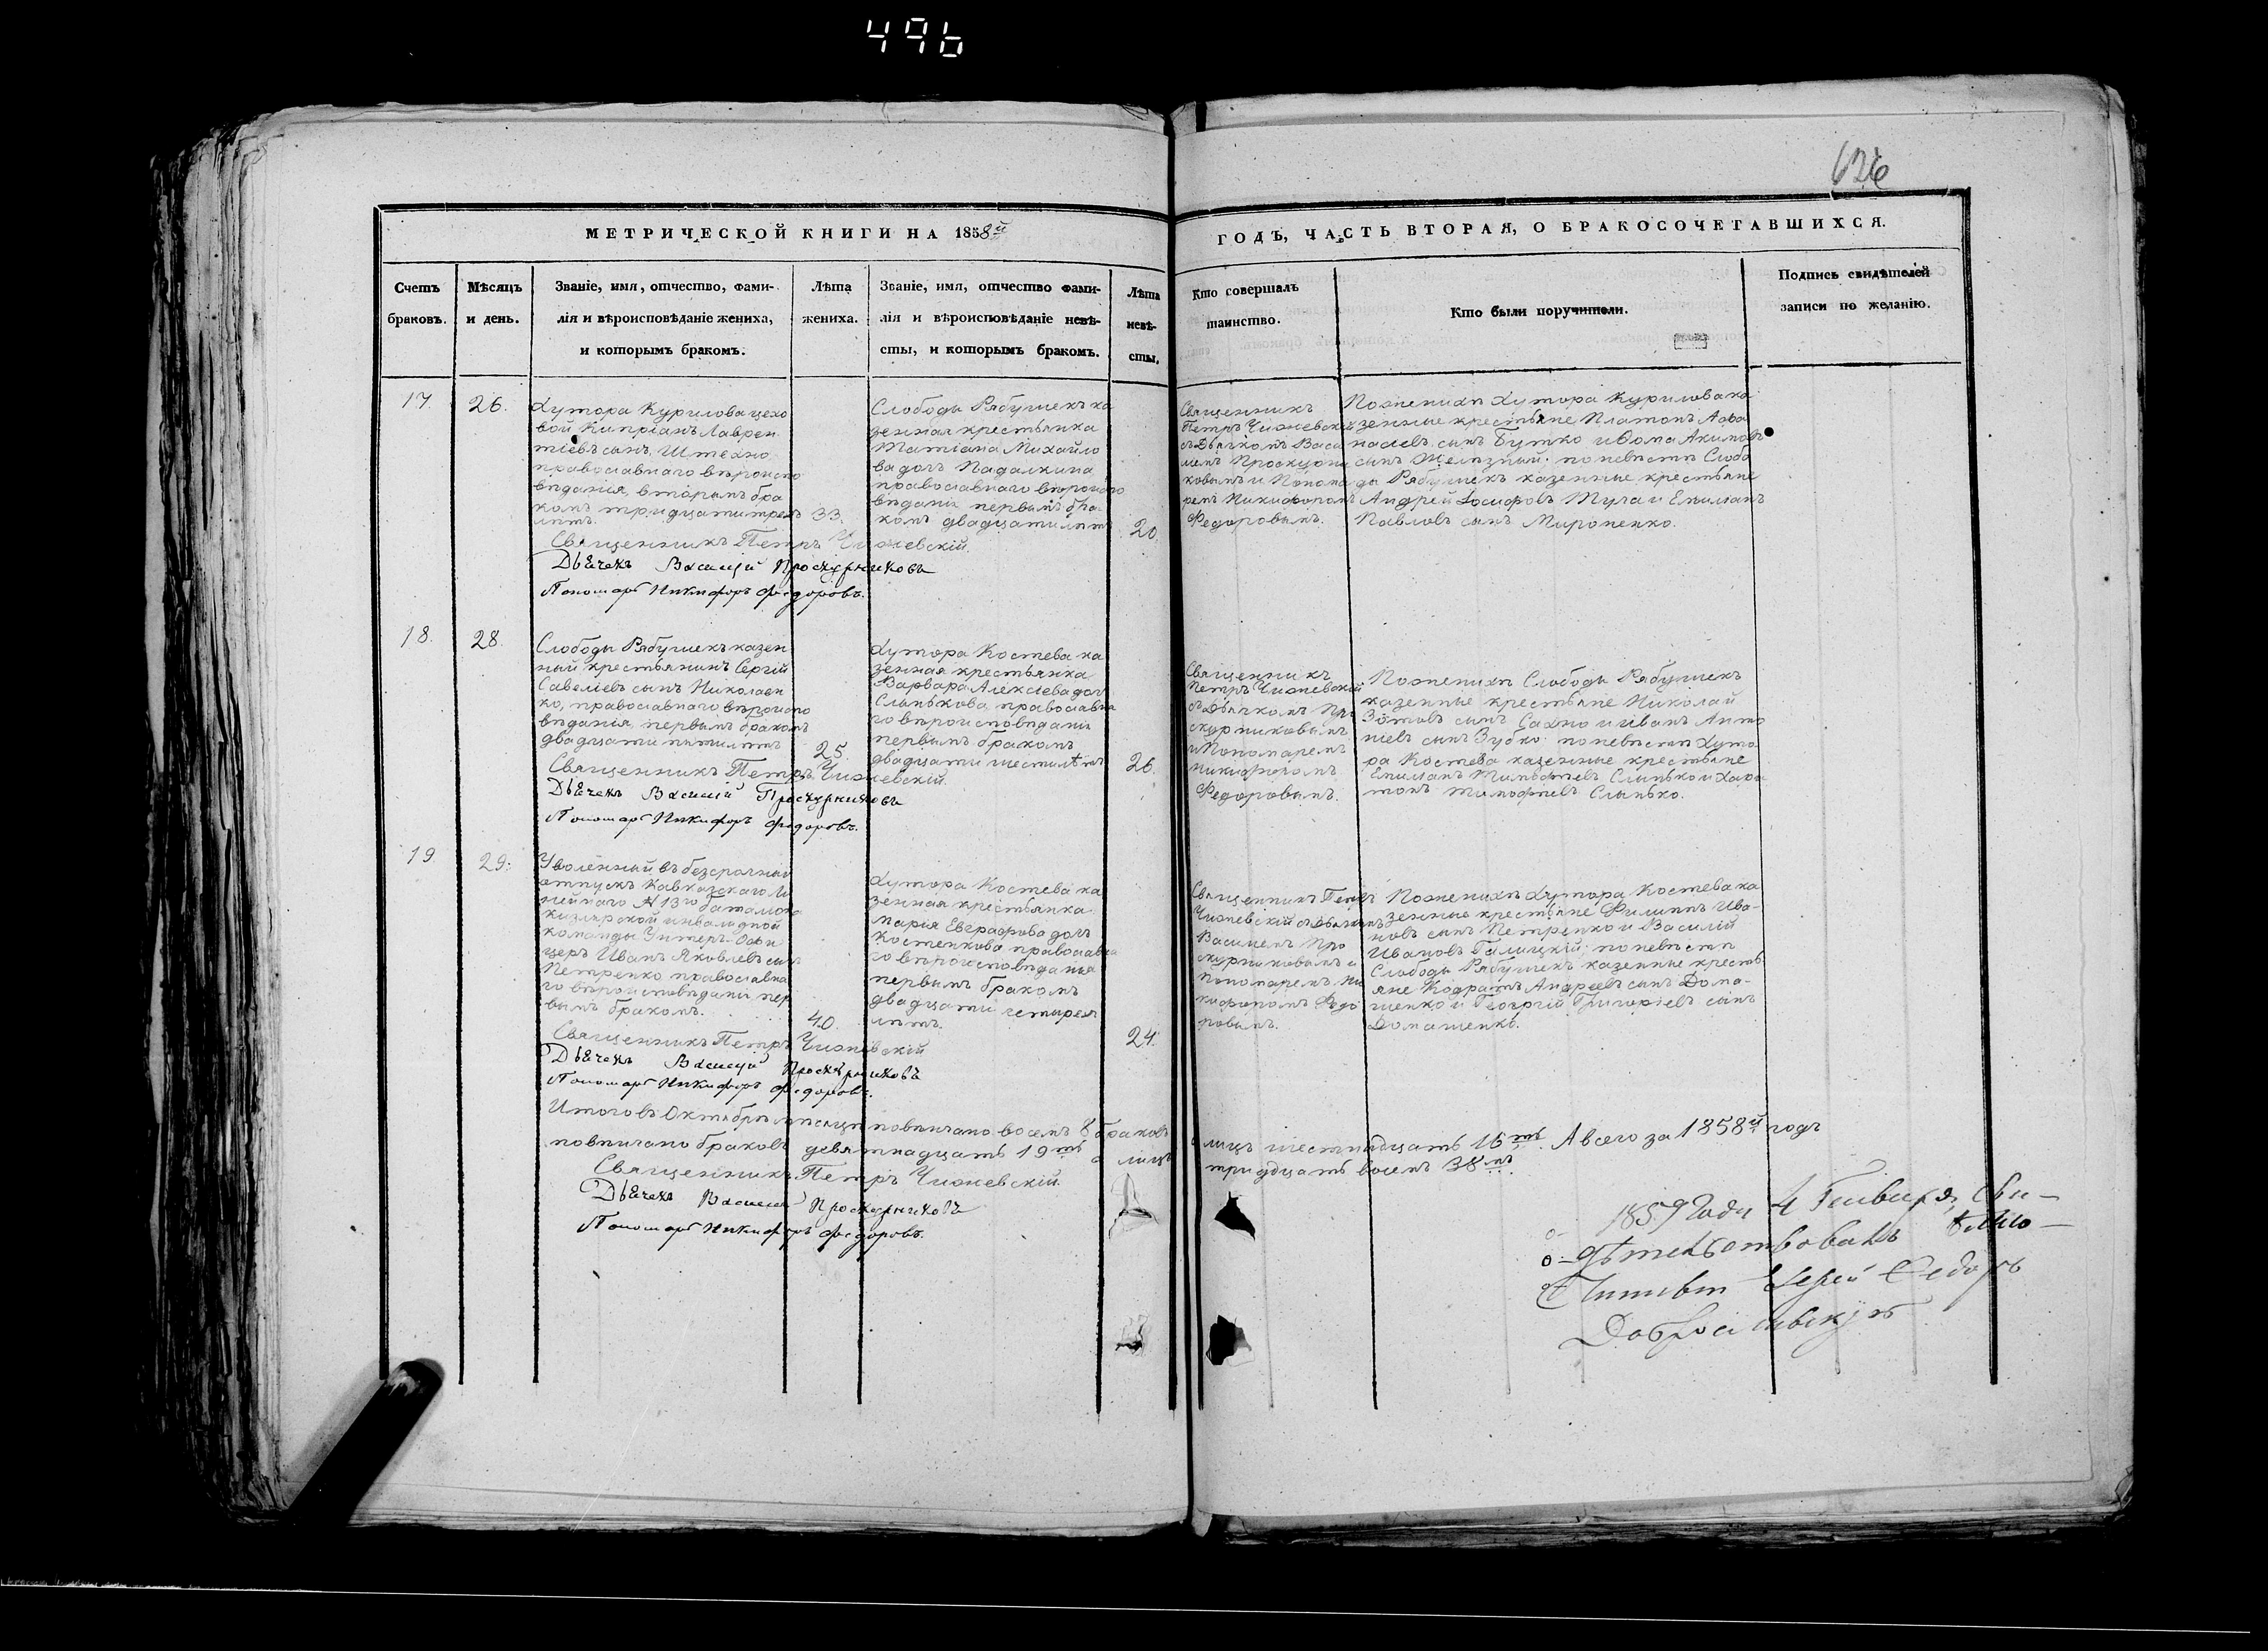 496
626
МЕТРИЧЕСКОЙ КНИГИ НА 1858й
ГОДЪ, ЧАСТЬ ВТОРАЯ, О БРАКОСОЧЕТАВШИХСЯ.
Счетъ
браковъ.
Мѣсяцъ
и день.
Званіе, имя, отчество, фами-
лія и вѣроисповѣданіе жениха,
и которымъ бракомъ.
Лѣта
жениха.
Званіе, имя, отчество фами-
лія и вѣроисповѣданіе невѣ-
сты, и которымъ бракомъ.
Лѣта
невѣ-
сты.
Кто совершалъ
таинство.
Кто были поручители.
Подпись свидѣтелей
записи по желанію.
17.
26.
Хутора Курилова цехо
вой Кипріанъ Лаврен
тіевъ сынъ, Штехно
православнаго вѣроиспо
вѣданія, вторымъ бра
комъ тридцати трехъ
лѣтъ.
33.
Слободы Рябушекъ ка
зенная крестьянка
Татіана Михайло
ва дочь Падалкина
православнаго вѣроиспо
вѣданія первымъ бра
комъ двадцати лѣтъ
20.
Священникъ
Петръ Чижевскій
съ Дьячкомъ Васи
лемъ Проскурни
ковымъ и Понома
ремъ Никифоромъ
Федоровымъ.
По женихѣ Хутора Курилова ка
зенные крестьяне Платонъ Афа
насіевъ сынъ Бутко и Фома Акимовъ
сынъ Желѣзный; по невѣстѣ Слобо
ды Рябушекъ казенные крестьяне
Андрей Іосифовъ Тула и Емиліанъ
Павловъ сынъ Мироненко.
Священникъ Петръ Чижевскій.
Дьячекъ Василій Проскурниковъ
Пономарь Никифоръ Федоровъ.
18.
28.
Слободы Рябушекъ казен
ный крестьянинъ Сергій
Савеліевъ сынъ Николаен
ко, православнаго вѣроиспо
вѣданія, первымъ бракомъ
двадцати пяти лѣтъ
25.
Хутора Костева ка
зенная крестьянка
Варвара Алексіева доч
Слинькова, православна
го вѣроисповѣданія
первымъ бракомъ
двадцати шести лѣтъ
26.
Священникъ
Петръ Чижевскій
съ Дьячкомъ Про
скурниковымъ
и Пономаремъ
Никифоромъ
Федоровымъ.
По женихѣ Слободы Рябушекъ
казенные крестьяне Николай
Зотовъ сынъ Сахно и Иванъ Анто
ніевъ сынъ Зубко: по невѣстѣ Хуто
ра Костева казенные крестьяне
Емиліанъ Тимофѣевъ Слинько и Хари
тонъ Тимофѣевъ Слинько.
Священникъ Петръ Чижевскій.
Дьячекъ Василій Проскурниковъ
Пономарь Никифоръ Федоровъ.
19.
29.
Уволенный въ безсрочный
отпускъ Кавказскаго Ли
нейнаго №13го баталіона
Кизлярской инвалидной
команды Унтеръ-Офи
церъ Иванъ Яковлевъ сынъ
Петренко православна
го вѣроисповѣданія пер
вымъ бракомъ.
40.
Хутора Костева ка
зенная крестьянка
Марія Евграфова дочь
Костенкова православна
го вѣроисповѣданія
первымъ бракомъ
двадцати четырехъ
лѣтъ.
24.
Священникъ Петръ
Чижевскій съ Дьячкомъ
Василіемъ Про
скурниковымъ и
Пономаремъ Ни
кифоромъ Федо
ровымъ.
По женихѣ Хутора Костева ка
зенные крестьяне Филиппъ Ива-
новъ сынъ Петренко и Василій
Ивановъ Галицкій; по невѣстѣ
Слободы Рябушекъ казенные кресть
яне Кодратъ Андреевъ сынъ Дома-
шенко и Георгій Григоріевъ сынъ
Домашенко.
Священникъ Петръ Чижевскій
Дьячекъ Василій Проскурниковъ
Пономарь Никифоръ Федоровъ.
Итого въ Октябрѣ мѣсяцѣ повѣнчано восемъ 8 браковъ лицъ шестнадцать 16ть. А всего за 1858й годъ
повѣнчано браковъ девятнадцать 19ть а лицъ тридцать восемъ 38мъ.
Священникъ Петръ Чижевскій
Дьячекъ Василій Проскурниковъ
Пономарь Никифоръ Федоровъ.
1859 Года 4 Генваря, Сви-
дѣтельствовалъ
Іерей Ѳедоръ